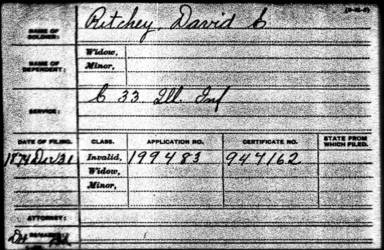 (3-16-6)
NAME OF SOLDIER: Ritchey, David C
NAME OF DEPENDENT: Widow,
Minor,
SERVICE: C 33 Ill Inf
DATE OF FILING. CLASS. APPLICATION NO. CERTIFICATE NO. STATE FROM WHICH FILED.
Invalid, 199483 947162
Widow,
Minor,
ATTORNEY:
REMARKS: